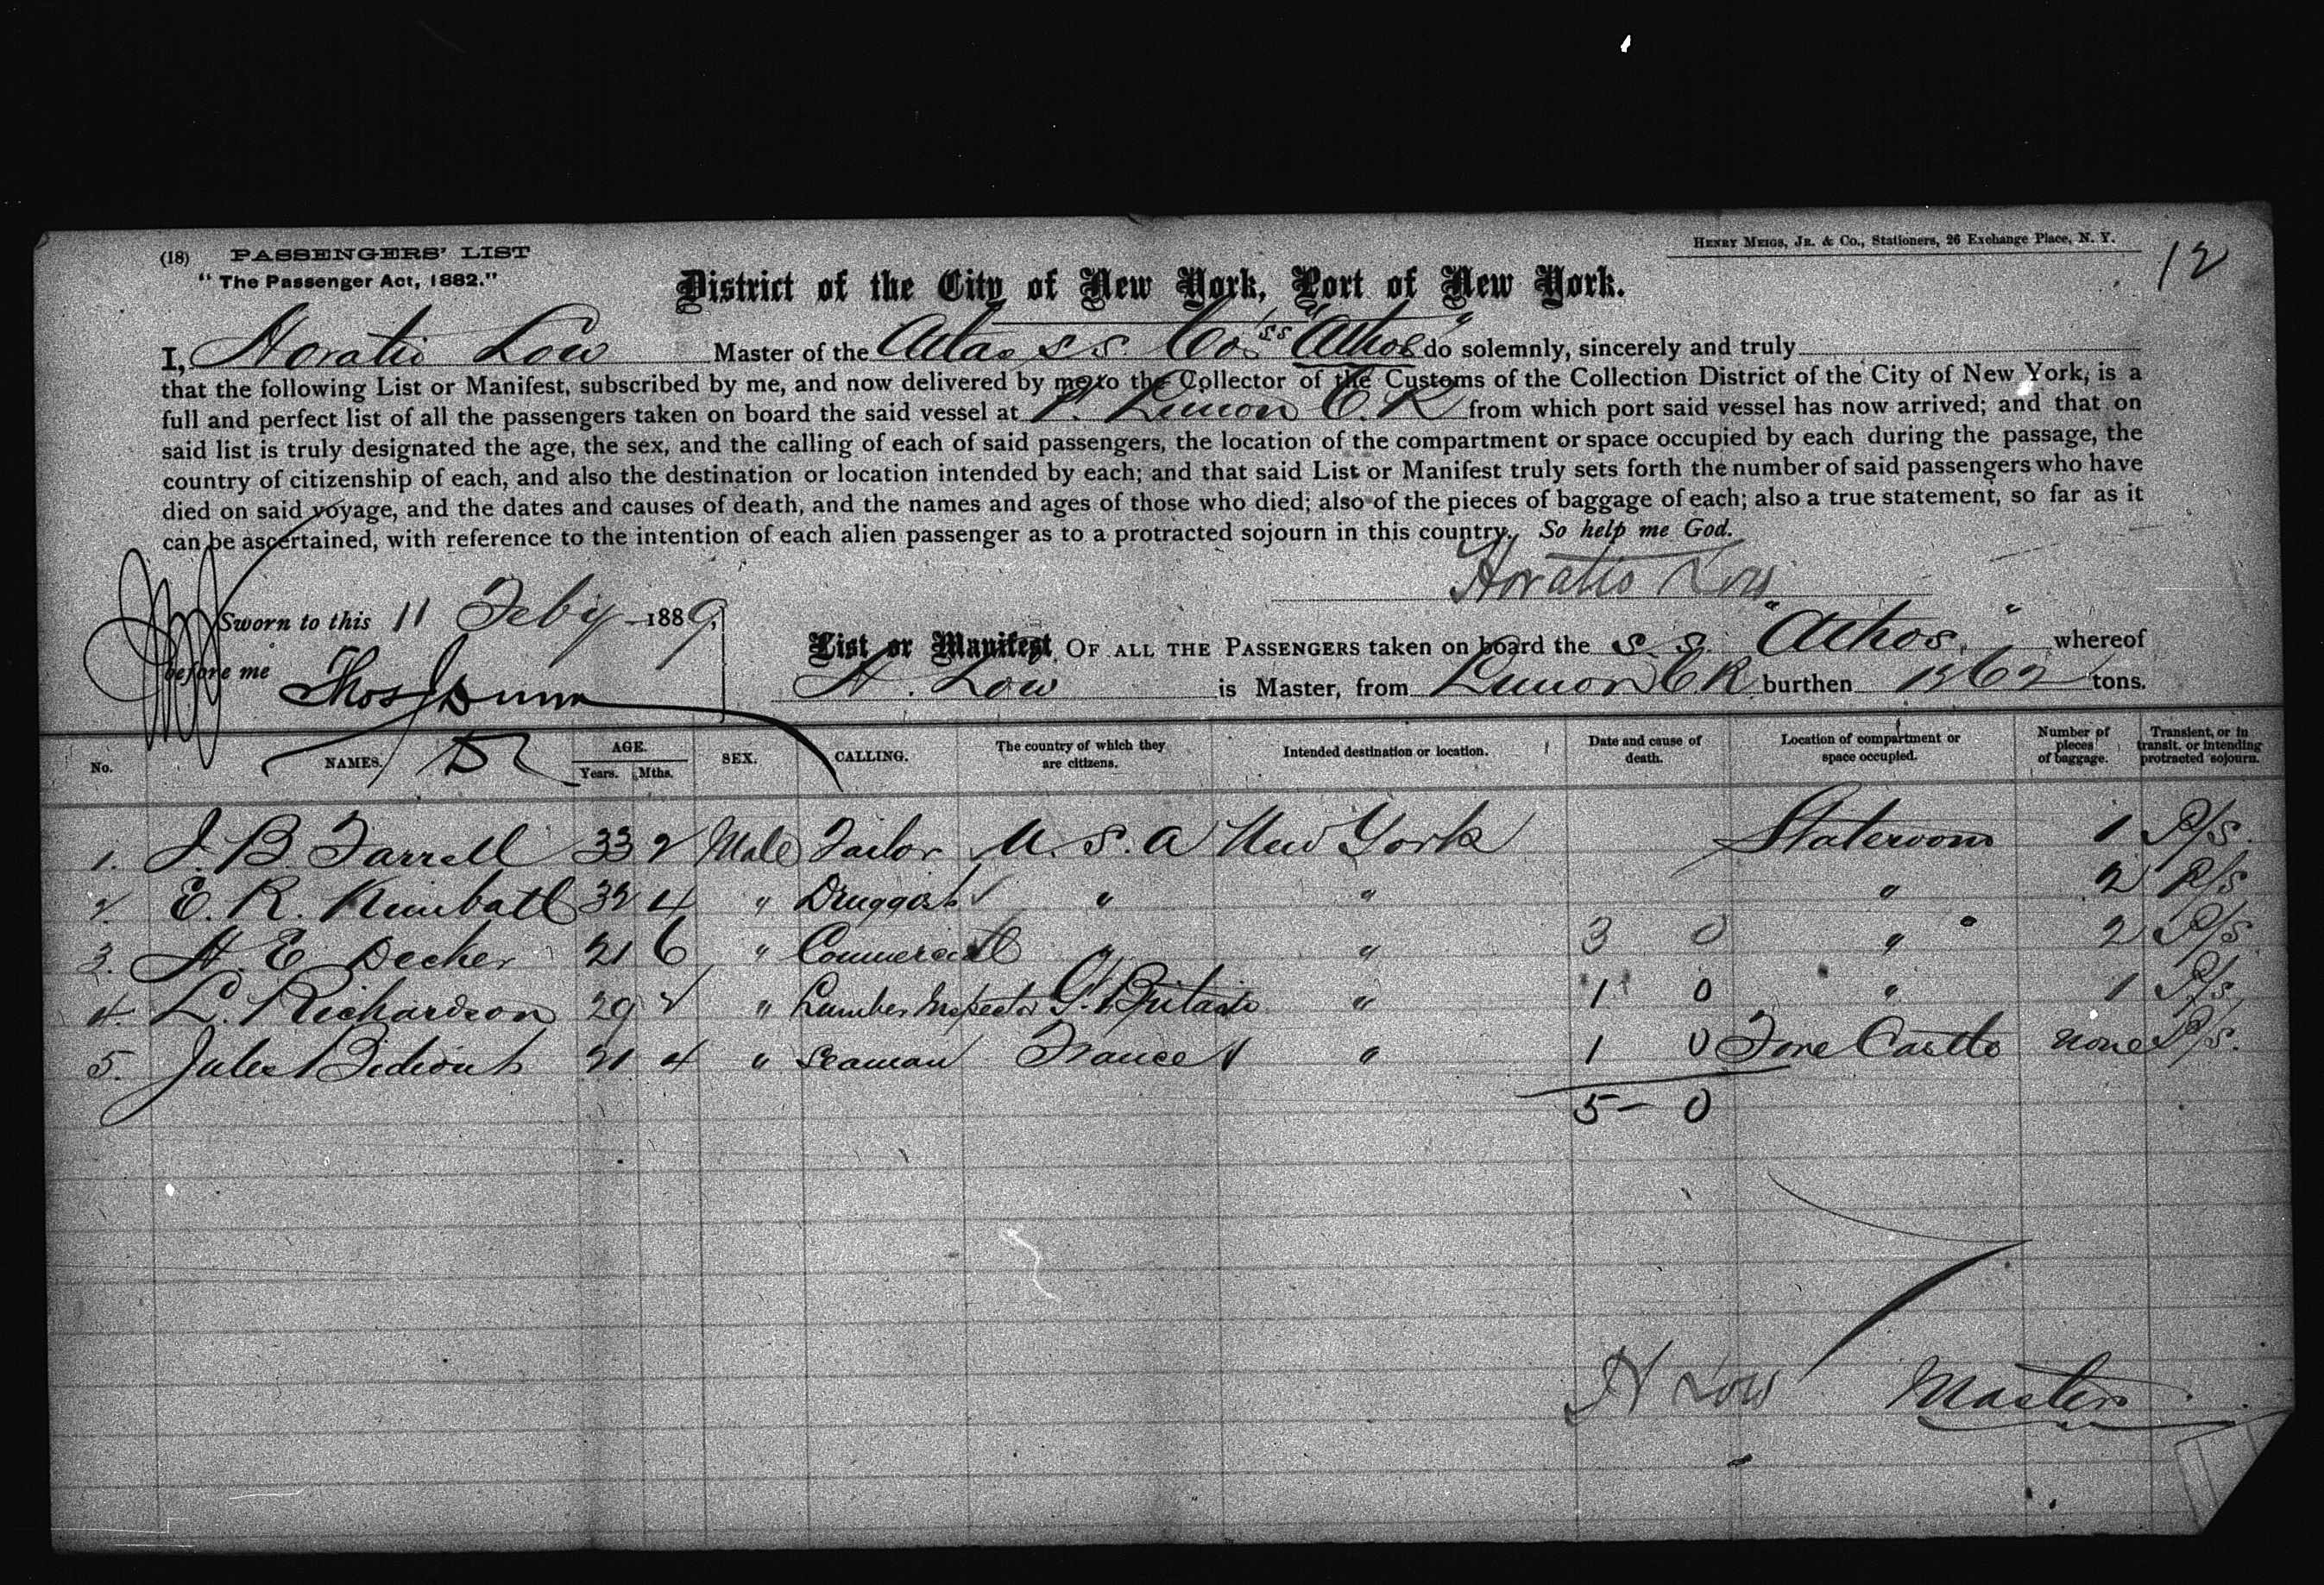 (18) PASSENGERS' LIST
"The Passenger Act, 1882."
HENRY MEIGS, JR. & Co., Stationers, 26 Exchange Place, N. Y.
12
District of the City of New York, Port of New York.
I, Horatio Low Master of the Atlas S S. Co's SS "Athos" do solemnly, sincerely and truly
that the following List or Manifest, subscribed by me, and now delivered by me to the Collector of the Customs of the Collection District of the City of New York, is a
full and perfect list of all the passengers taken on board the said vessel at Pt. Limon C. R from which port said vessel has now arrived; and that on
said list is truly designated the age, the sex, and the calling of each of said passengers, the location of the compartment or space occupied by each during the passage, the
country of citizenship of each, and also the destination or location intended by each; and that said List or Manifest truly sets forth the number of said passengers who have
died on said voyage, and the dates and causes of death, and the names and ages of those who died; also of the pieces of baggage of each; also a true statement, so far as it
can be ascertained, with reference to the intention of each alien passenger as to a protracted sojourn in this country. So help me God.
Horatio Low
Sworn to this 11 Feby 1889,
before me Thos Dunn
List or Manifest OF ALL THE PASSENGERS taken on board the S. S. "Athos," whereof
H. Low is Master, from Limon C R burthen 1362 tons.
No. NAMES. AGE. Years. Mths. SEX. CALLING. The country of which they are citizens. Intended destination or location. Date and cause of death. Location of compartment or space occupied. Number of pieces of baggage. Transient, or in transit, or intending protracted sojourn.
1. J. B. Farrell 33 2 Male Tailor U. S. A New York Stateroom 1 P/s.
2. E. R. Kimball 32 4 " Druggist " " " 2 P/s
3. H. E. Decker 21 6 " Commercial " " 3 0 " 2 P/s.
4. L. Richardson 29 2 " Lumber Inspector Gt. Britain " 1 0 " 1 P/s
5. Jules 21 4 " Seaman France " 1 0 Fore Castle none P/s.
5 - 0
H Low Master